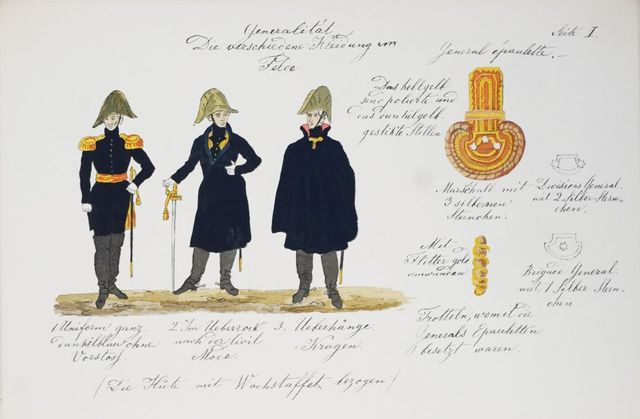 Generalität
Die verschiedene Kleidung im
Felde
Seite I.
General épaulette.
Das hellgelb
sind polierte und
das dunkelgelb
gestikte Stellen
Marschall mit
3 silbernen
Sternchen.
Divisions General
mit 2 Silber Stern-
chen.
Mit
Flitter gold
umwunden
Brigade General
mit 1 Silber Stern-
chen.
Trotteln, womit die
Generals Epauletten
besetzt waren.
1 Uniform ganz
dunkelblau ohne
Vorstoß
2. Im Ueberrock
nach der Civil
Mode.
3. Ueberhänge
Kragen
(Die Hüte mit Wachstaffet bezogen)